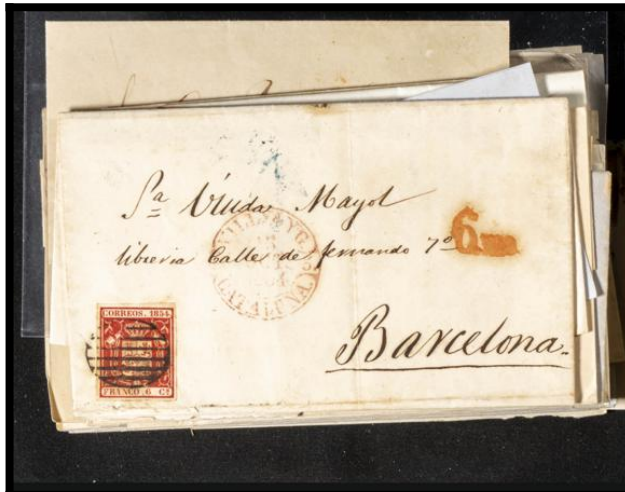 Sᵃ Viuda Mayol
libreria Calle de fernando 7º
6
CATALUÑA
Barcelona.
CORREOS. 1854.
FRANCO 6 Cˢ